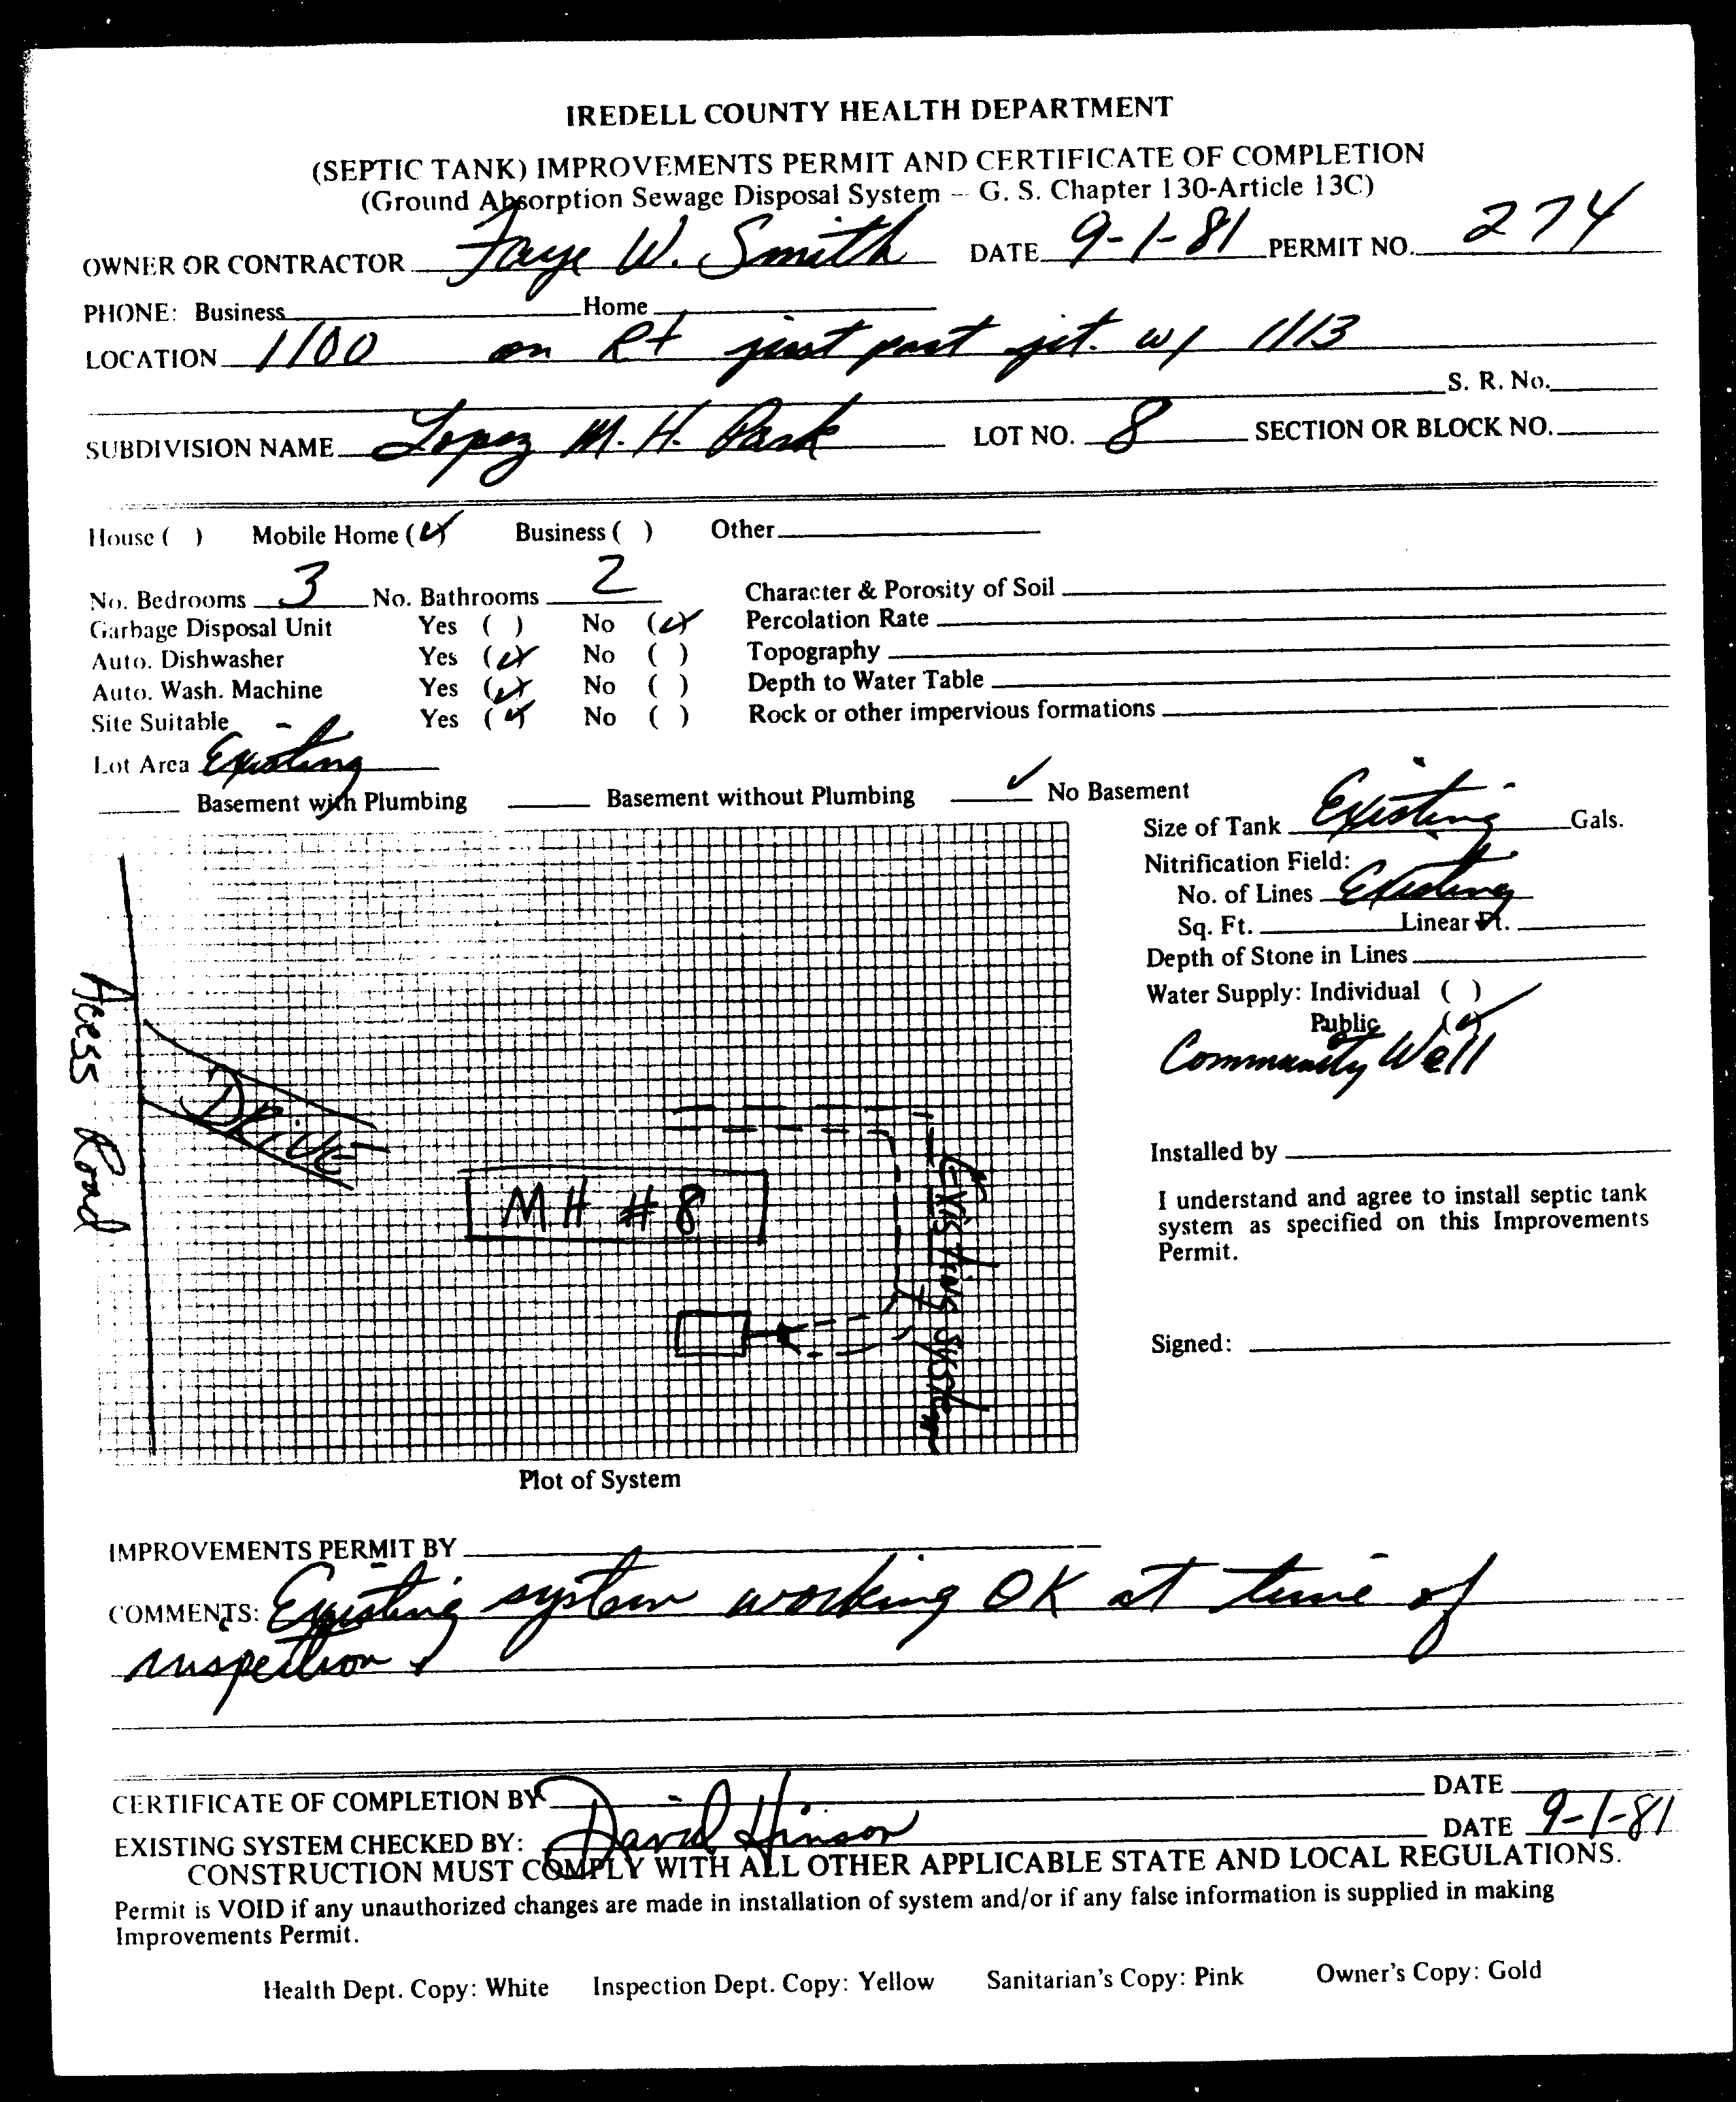 IREDELL COUNTY HEALTH DEPARTMENT
(SEPTIC TANK) IMPROVEMENTS PERMIT AND CERTIFICATE OF COMPLETION
(Ground Absorption Sewage Disposal System -- G. S. Chapter 130-Article 13C)
OWNER OR CONTRACTOR Faye W. Smith DATE 9-1-81 PERMIT NO. 274
PHONE: Business Home
LOCATION 1100 on Rt just past jct. w/ 1113
S. R. No.
SUBDIVISION NAME Lopez M. H. Park LOT NO. 8 SECTION OR BLOCK NO.
House ( ) Mobile Home (✓) Business ( ) Other
No. Bedrooms 3 No. Bathrooms 2 Character & Porosity of Soil
Garbage Disposal Unit Yes ( ) No (✓) Percolation Rate
Auto. Dishwasher Yes (✓) No ( ) Topography
Auto. Wash. Machine Yes (✓) No ( ) Depth to Water Table
Site Suitable - Yes (✓) No ( ) Rock or other impervious formations
Lot Area Existing
Basement with Plumbing Basement without Plumbing ✓ No Basement
Size of Tank Existing Gals.
Nitrification Field:
No. of Lines Existing
Sq. Ft. Linear Ft.
Depth of Stone in Lines
Water Supply: Individual ( )
Public (✓)
Community Well
Installed by
I understand and agree to install septic tank
system as specified on this Improvements
Permit.
Signed:
Acess Road
Drive
MH #8
Existing System
Plot of System
IMPROVEMENTS PERMIT BY
COMMENTS: Existing system working OK at time of
inspection.
CERTIFICATE OF COMPLETION BY DATE
EXISTING SYSTEM CHECKED BY: David Hinson DATE 9-1-81
CONSTRUCTION MUST COMPLY WITH ALL OTHER APPLICABLE STATE AND LOCAL REGULATIONS.
Permit is VOID if any unauthorized changes are made in installation of system and/or if any false information is supplied in making
Improvements Permit.
Health Dept. Copy: White Inspection Dept. Copy: Yellow Sanitarian's Copy: Pink Owner's Copy: Gold